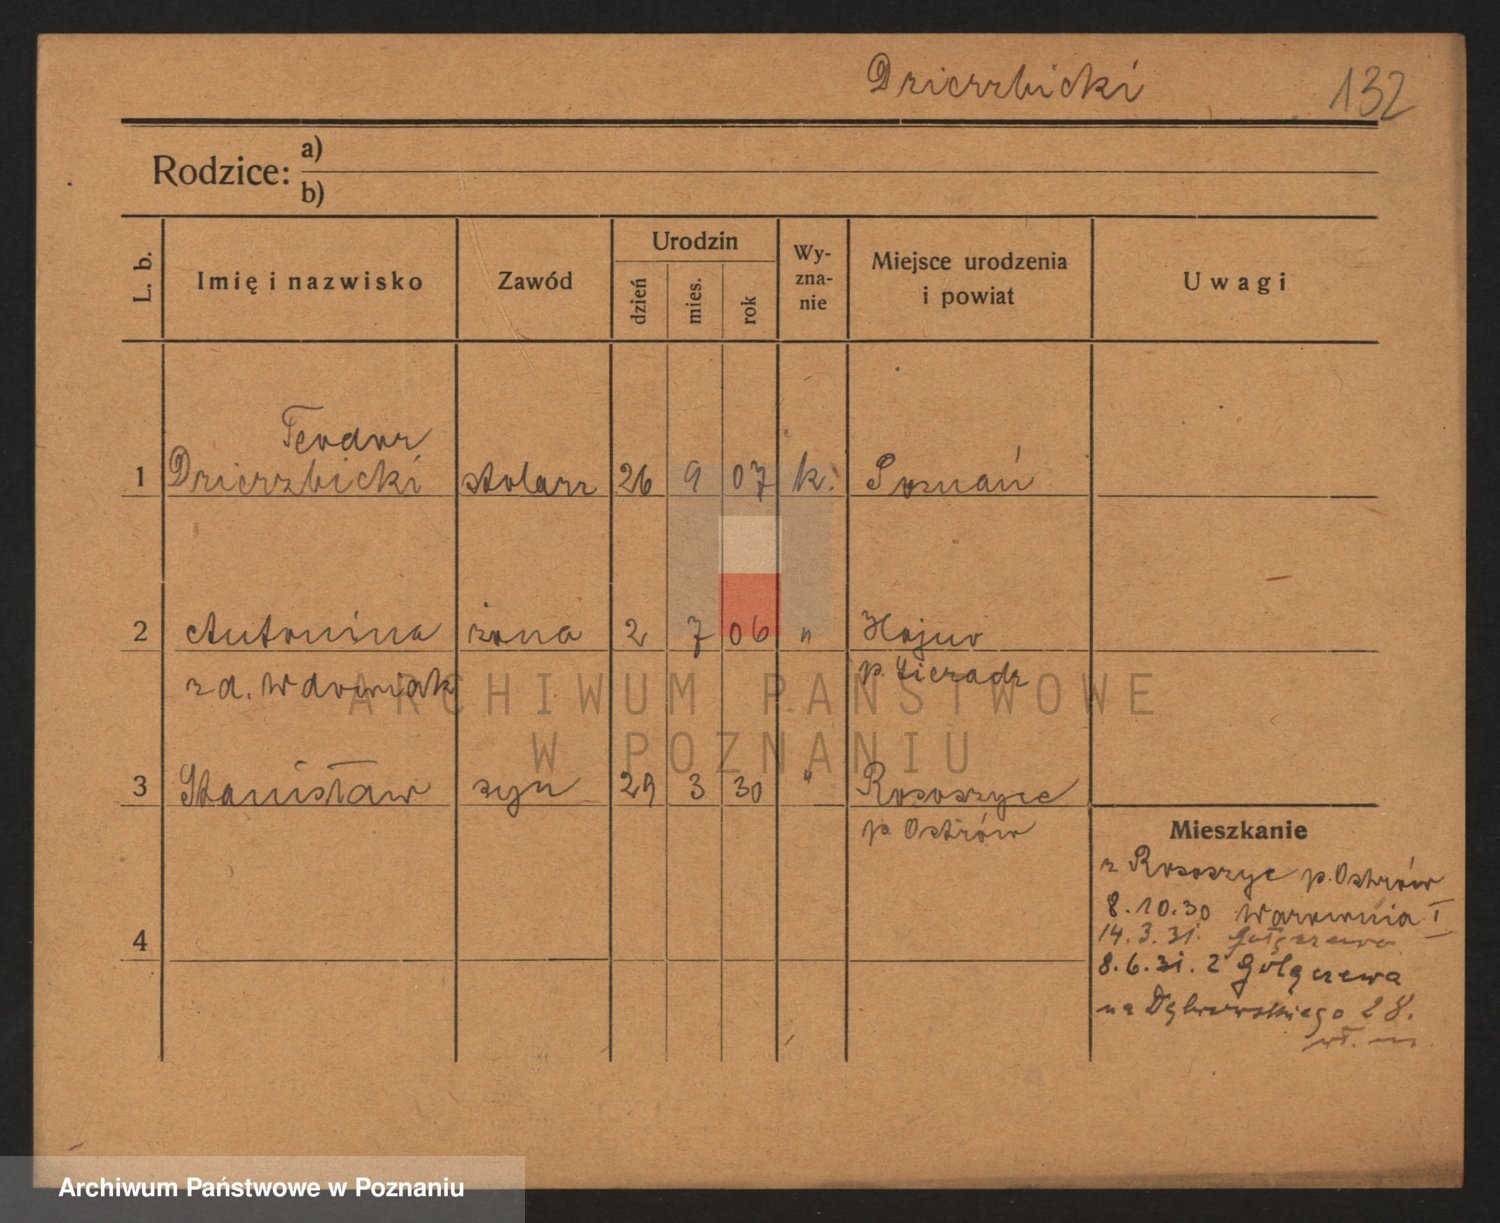 Dzierzbicki 132
Rodzice: a)
b)
L. b. Imię i nazwisko Zawód Urodzin dzień mies. rok Wy-zna-nie Miejsce urodzenia i powiat Uwagi
Teodor
1 Dzierzbicki stolarz 26 9 07 k. Poznań
2 Antonina żona 2 7 06 "
zd. Wdowiak p. Sieradz
3 Stanisław syn 29 3 30 " Rososzyce
p. Ostrów
Mieszkanie
z Rososzyc p. Ostrów
8.10.30
14.3.31.
4
8.6.31. z
na Dąbrowskiego 28.
ARCHIWUM PAŃSTWOWE
W POZNANIU
Archiwum Państwowe w Poznaniu